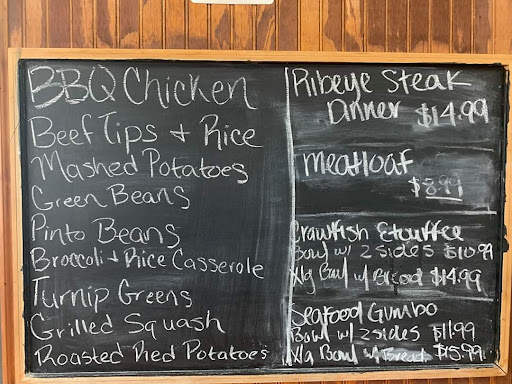 BBQ Chicken
Beef Tips + Rice
Mashed Potatoes
Green Beans
Pinto Beans
Broccoli + Rice Casserole
Turnip Greens
Grilled Squash
Roasted Red Potatoes
Ribeye Steak
Dinner $14.99
Meatloaf
$8.99
Crawfish Etouffee
Bowl w/ 2 sides $10.99
Xlg Bowl w/ Bread $14.99
Seafood Gumbo
Bowl w/ 2 sides $11.99
Xlg Bowl w/ Bread $15.99